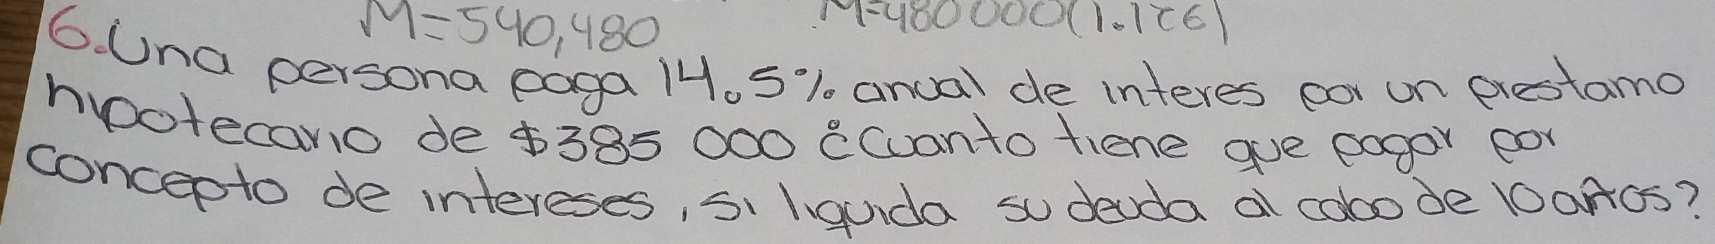 M=540,480 M=480 000(1.126)
6. Una persona paga 14.5% anual de interes por un prestamo
hipotecario de $385 000 ¿Cuanto tiene que pagar por
concepto de intereses, si liquida su deuda al cabo de 10 años?